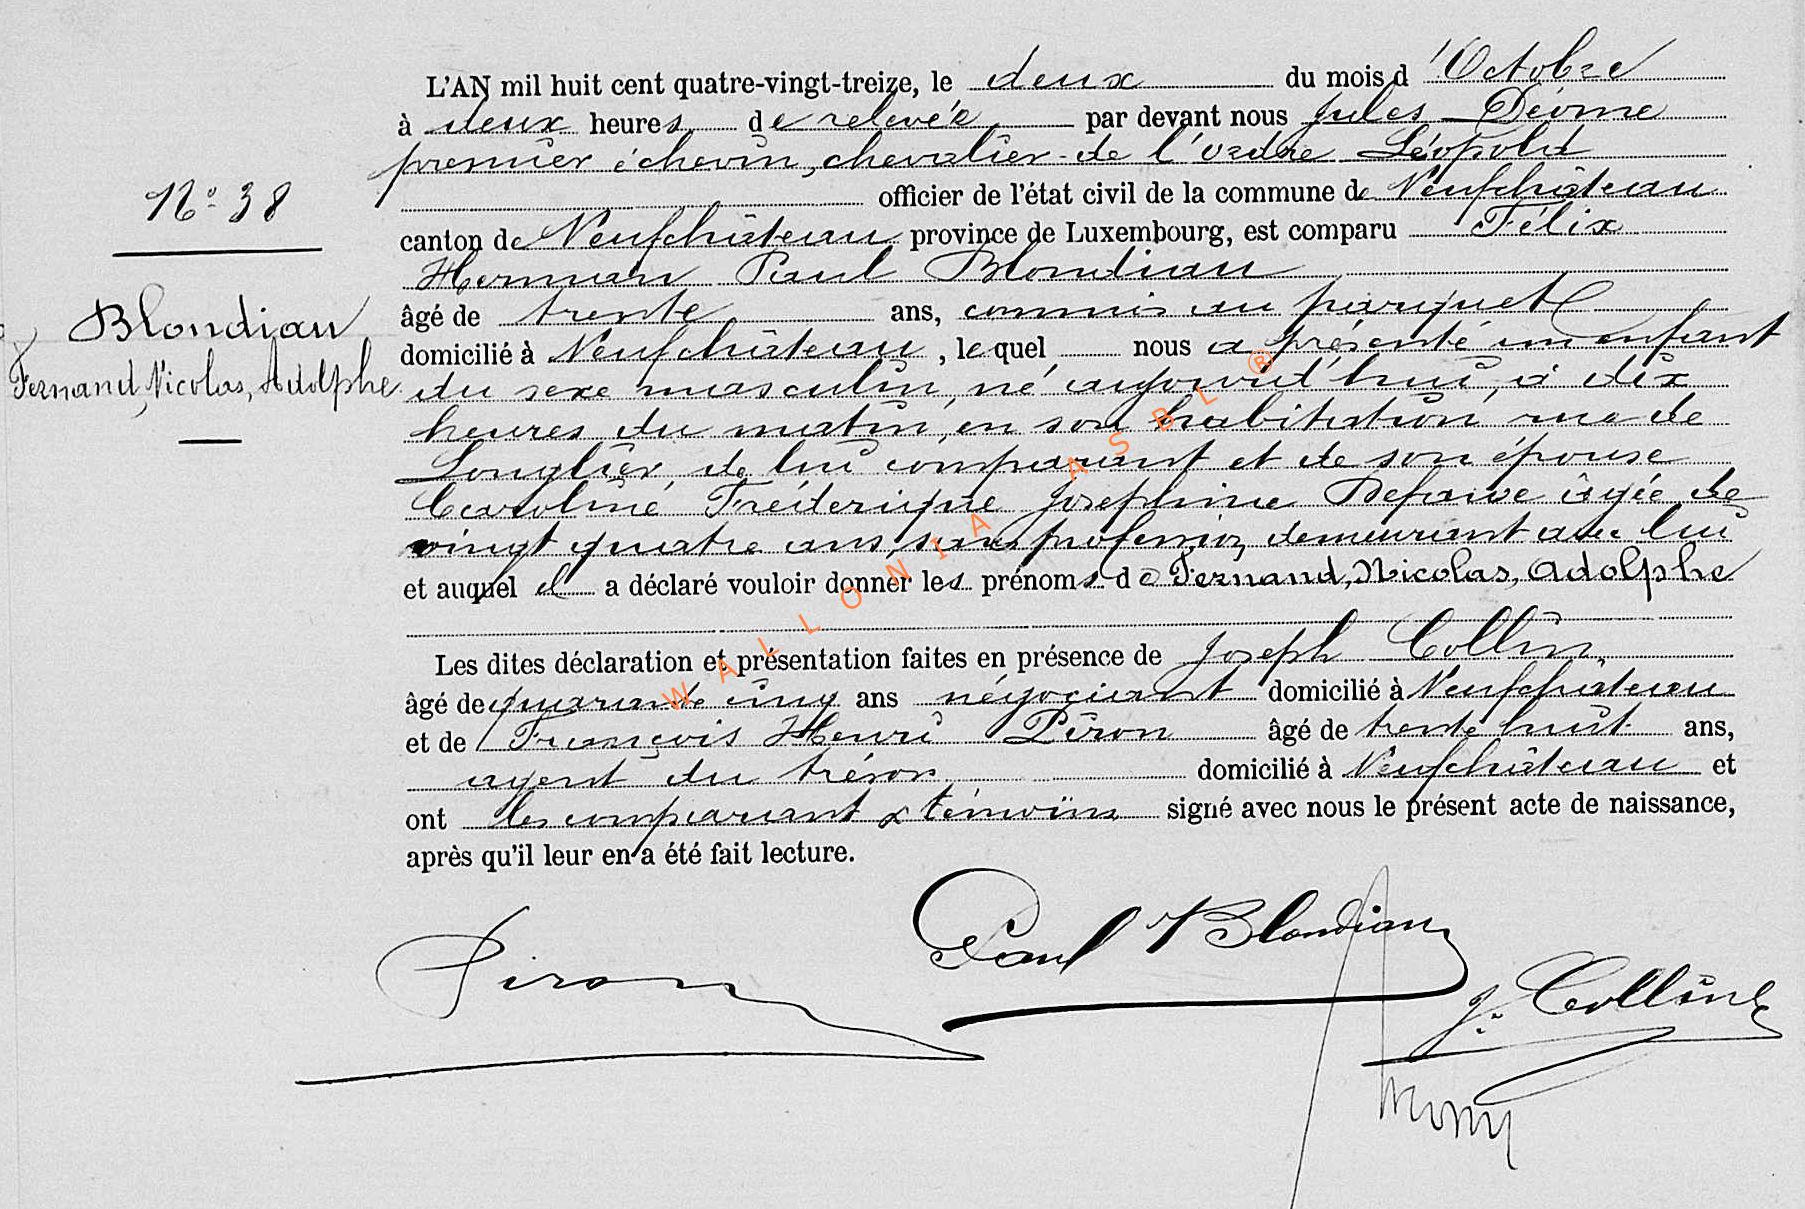 L'AN mil huit cent quatre-vingt-treize, le deux du mois d'Octobre
à deux heures de relevée par devant nous Jules Déome
premier échevin, chevalier de l'ordre Léopold
N° 38
officier de l'état civil de la commune de Neufchâteau
canton de Neufchâteau province de Luxembourg, est comparu Félix
Herman Paul Blondiau
Blondiau
âgé de trente ans, commis au parquet
domicilié à Neufchâteau, lequel nous a présenté un enfant
Fernand, Nicolas, Adolphe
du sexe masculin, né aujourd'hui, à dix
heures du matin, en son habitation, rue de
Longlier, de lui comparant et de son épouse
Caroline Fréderique Josephine Defawe âgée de
vingt quatre ans, sans profession, demeurant avec lui
et auquel il a déclaré vouloir donner les prénoms de Fernand, Nicolas, Adolphe
Les dites déclaration et présentation faites en présence de Joseph Collin,
âgé de quarante cinq ans négociant domicilié à Neufchâteau
et de François Henri Piron âgé de trente huit ans,
agent du trésor domicilié à Neufchâteau et
ont les comparant & témoins signé avec nous le présent acte de naissance,
après qu'il leur en a été fait lecture.
Piron
Paul Blondiau
J. Collin
WALLONIA ASBL ®